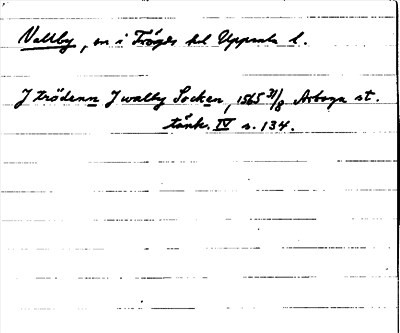 Vallby, sn i Trögds hd Uppsala l.
J trödenn J walby Socken, 1565 31/8 Arboga st.
tänk. IV s. 134.